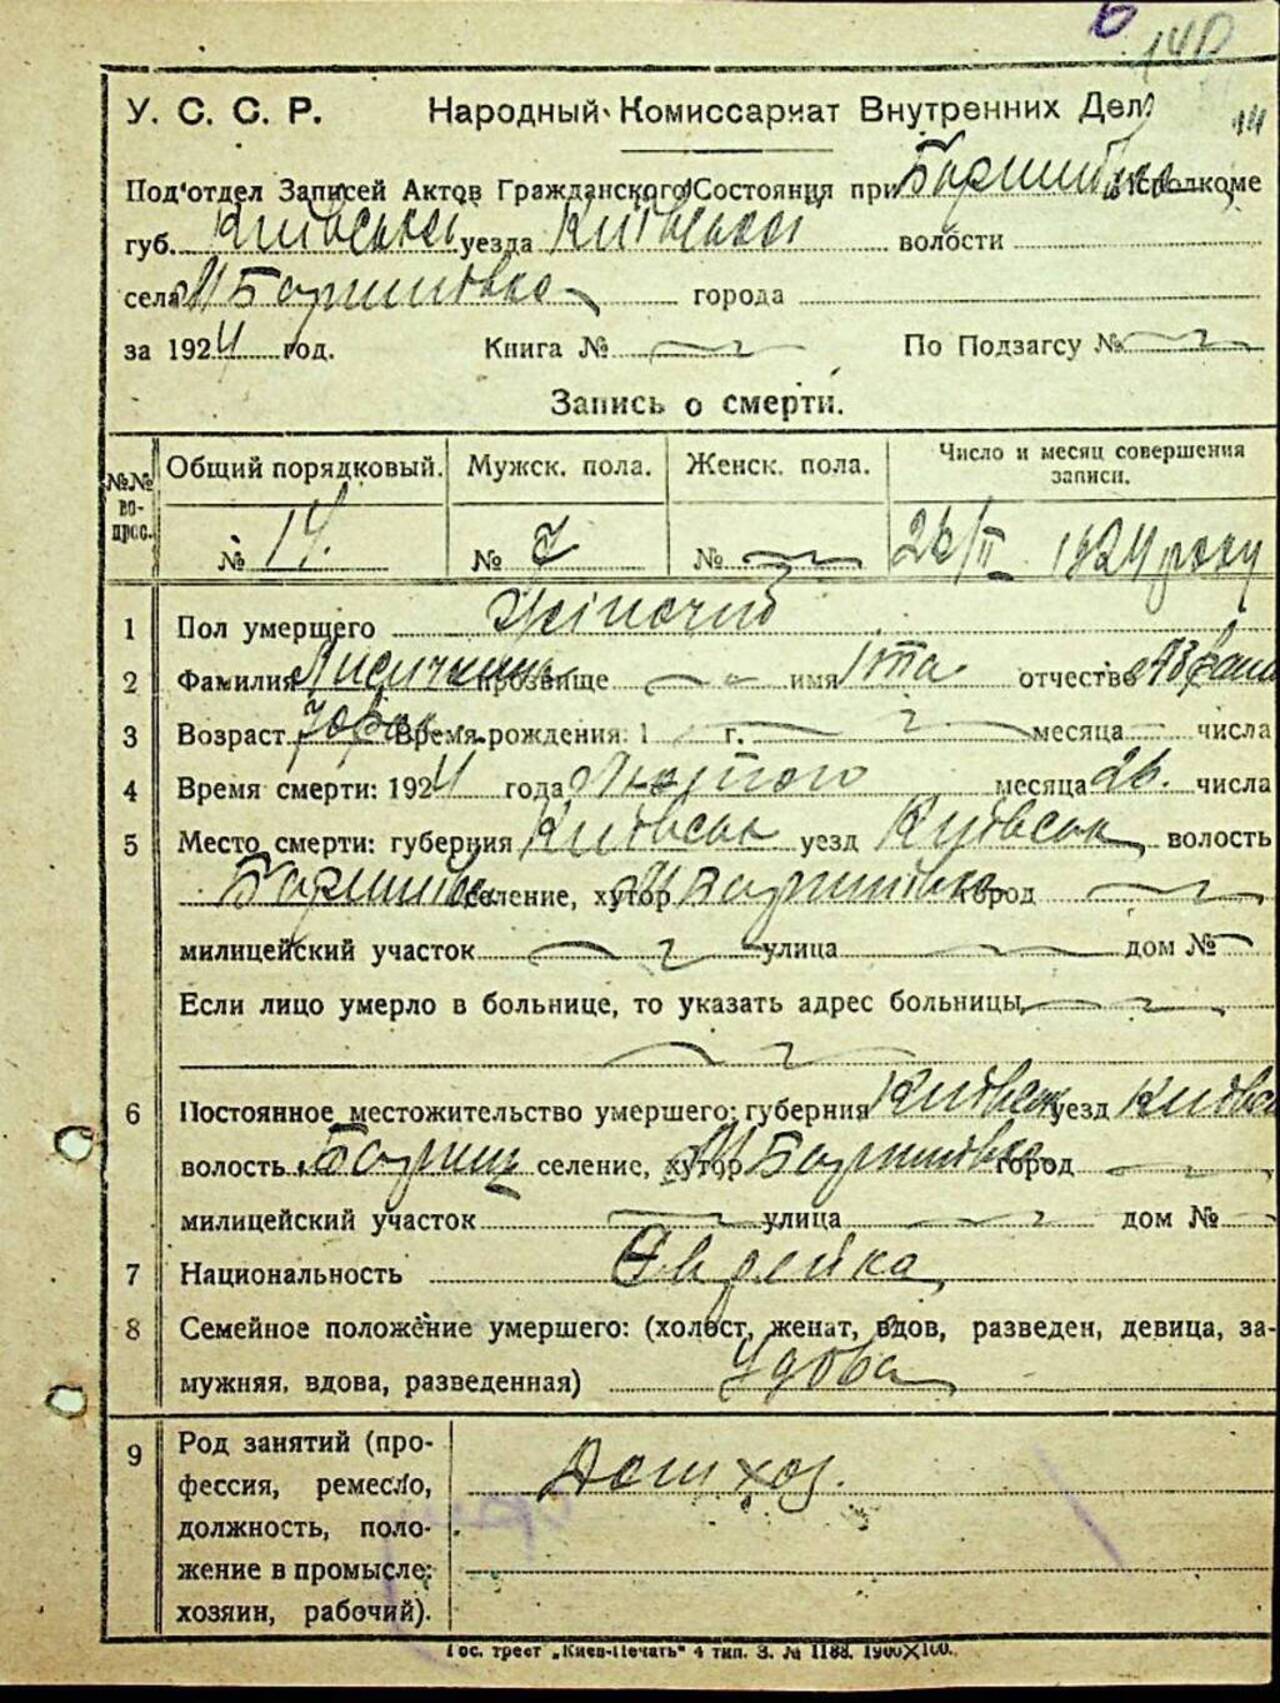 У. С. С. Р. Народный Комиссариат Внутренних Дел
Под'отдел Записей Актов Гражданского Состояния при исполкоме
губ. Київської уезда Київської волости
села М Баришівка города
за 1924 год. Книга № По Подзагсу №
Запись о смерти.
№№ вопрос. Общий порядковый. Мужск. пола. Женск. пола. Число и месяц совершения записи.
№ 14. № 7 № 26/II 1924 року
1 Пол умершего Жіночий
2 Фамилия прозвище имя Іта отчество
3 Возраст Время рождения: 1 г. месяца числа
4 Время смерти: 1924 года Лютого месяца 26. числа
5 Место смерти: губерния Київськ уезд Київськ волость
селение, хутор М Баришівка город
милицейский участок улица дом №
Если лицо умерло в больнице, то указать адрес больницы
6 Постоянное местожительство умершего: губерния Київськ уезд
волость Бориш селение, хутор М Баришівка город
милицейский участок улица дом №
7 Национальность Єврейка
8 Семейное положение умершего: (холост, женат, вдов, разведен, девица, за-
мужняя, вдова, разведенная) Удова
9 Род занятий (про-
фессия, ремесло, Дом хоз.
должность, поло-
жение в промысле:
хозяин, рабочий).
Гос. трест „Киев-Печать" 4 тип. З. № 1188. 1900×100.